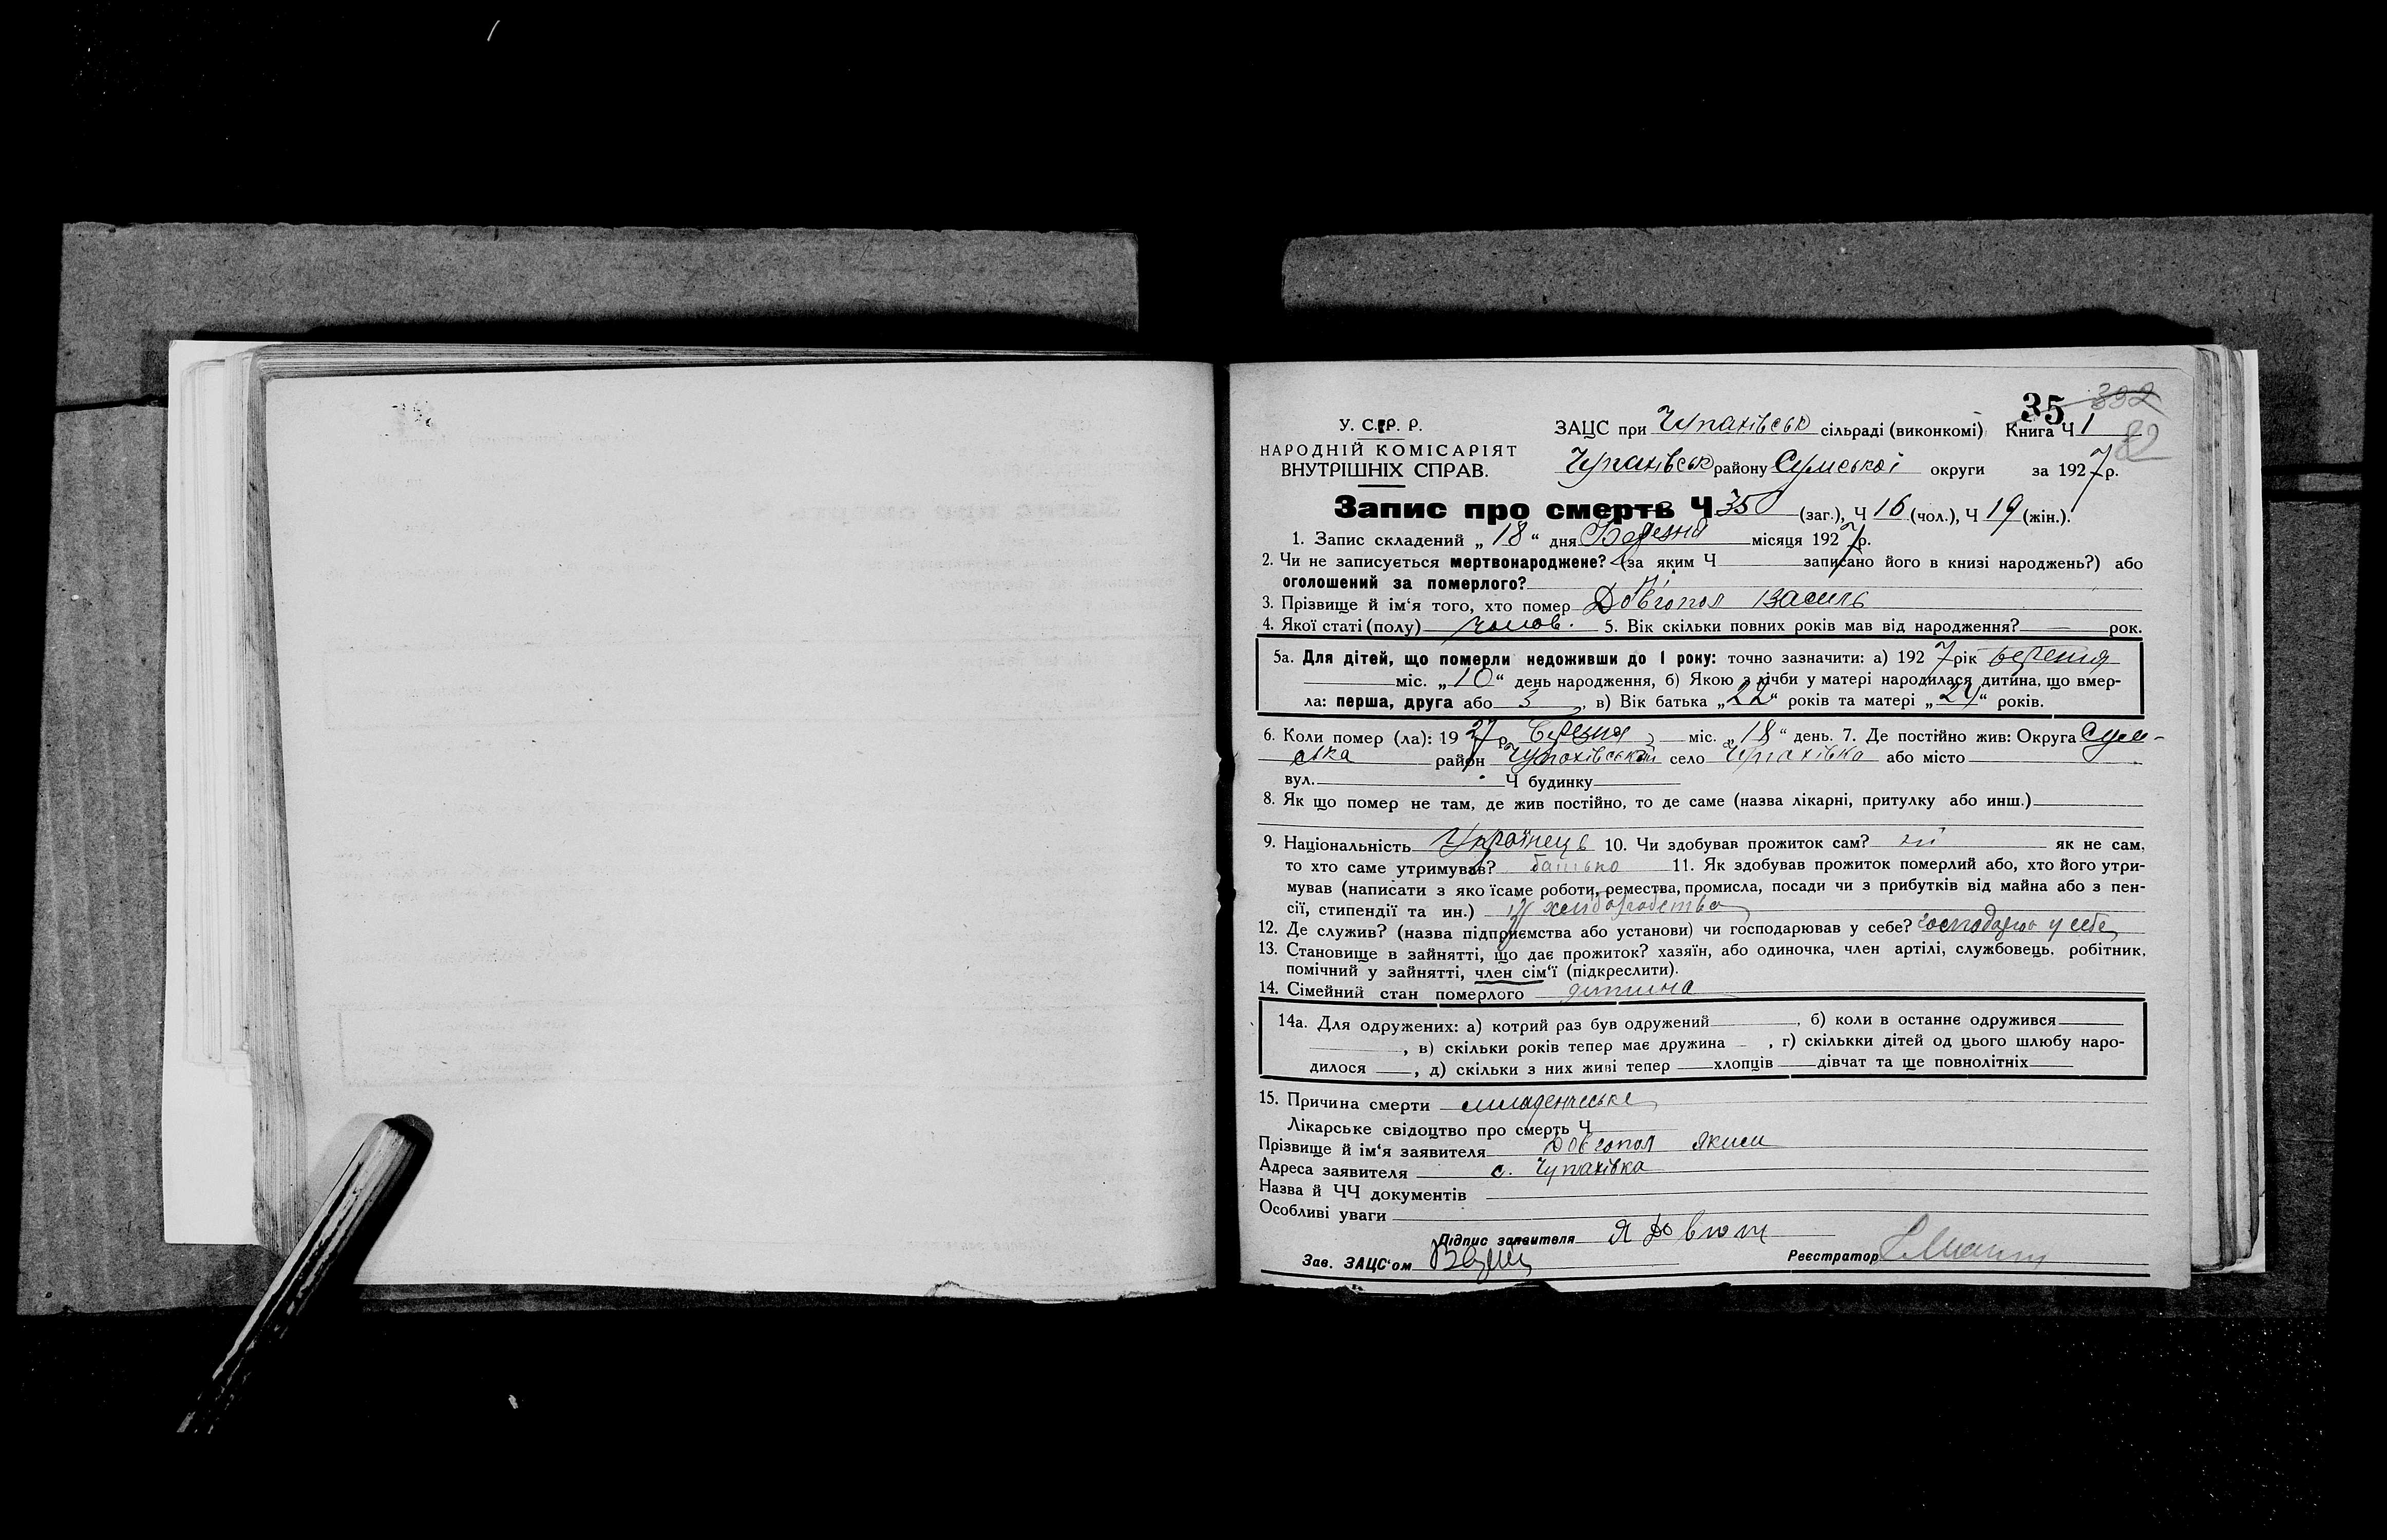 35 392
82
У. С.Р.Р. ЗАЦС при Чупахівськ сільраді (виконкомі) Книга Ч 1
НАРОДНІЙ КОМІСАРІЯТ
ВНУТРІШНІХ СПРАВ. Чупахівськ району Сумської округи за 1927 р.
Запис про смерть Ч 35 (заг.), Ч 16 (чол.), Ч 19 (жін.).
1. Запис складений „ 18 “ дня Березня місяця 1927 р.
2. Чи не записується мертвонароджене? (за яким Ч записано його в книзі народжень?) або
оголошений за померлого?
3. Прізвище й ім‘я того, хто помер Довгопол Василь
4. Якої статі (полу) чолов. 5. Вік скільки повних років мав від народження? — рок.
5а. Для дітей, що померли недоживши до 1 року: точно зазначити: а) 1927 рік березня
міс. „ 10 “ день народження, б) Якою з лічби у матері народилася дитина, що вмер-
ла: перша, друга або 3, в) Вік батька „ 22 “ років та матері „ 24 “ років.
6. Коли помер (ла): 1927 р. березня міс. „ 18 “ день. 7. Де постійно жив: Округа Сум-
ська район Чупахівський село Чупахівка або місто
вул. Ч будинку
8. Як що помер не там, де жив постійно, то де саме (назва лікарні, притулку або инш.)
9. Національність Українець 10. Чи здобував прожиток сам? ні як не сам,
то хто саме утримував? батько 11. Як здобував прожиток померлий або, хто його утри-
мував (написати з яко їсаме роботи, ремества, промисла, посади чи з прибутків від майна або з пен-
сії, стипендії та ин.) хліборобства
12. Де служив? (назва підприємства або установи) чи господарював у себе? господарює у себе
13. Становище в зайнятті, що дає прожиток? хазяїн, або одиночка, член артілі, службовець, робітник,
помічний у зайнятті, член сім‘ї (підкреслити).
14. Сімейний стан померлого дитина
14а. Для одружених: а) котрий раз був одружений, б) коли в останнє одружився
, в) скільки років тепер має дружина — , г) скількки дітей од цього шлюбу наро-
дилося , д) скільки з них живі тепер хлопців дівчат та ще повнолітніх
15. Причина смерти младенческі
Лікарське свідоцтво про смерть Ч
Прізвище й ім‘я заявителя Довгопол Яким
Адреса заявителя с. Чупахівка
Назва й ЧЧ документів
Особливі уваги
Підпис заявителя Я Довгоп
Зав. ЗАЦС‘ом Реєстратор